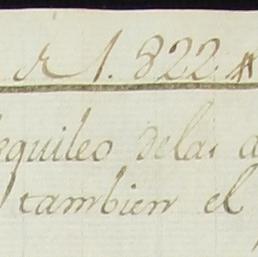 de 1.822
equileo delas a
tambien el